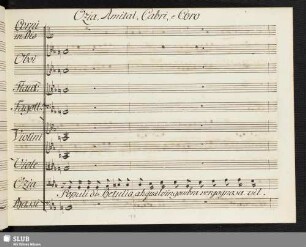 Ozia, Amital, Cabri, e Coro
Corni
in
Oboi
Flauti
Fagotti
Violini
Viole
Ozia
Popoli di Betulia, ah qual v'ingombra vergognosa vil
Bassi
SLUB